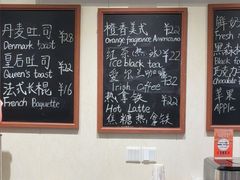 丹麦吐司 ¥28
Denmark toast
皇后吐司 ¥22
Queen's toast
法式长棍 ¥16
French Baguette
橙香美式 ¥22
orange fragrance Americano
红茶
Ice black tea
爱尔兰咖啡
Irish Coffee ¥32
热拿铁 ¥22
Hot Latte
焦糖热拿铁
鲜奶
Fresh
黑森
Black fo
瓦克
Choco
苹果
Apple